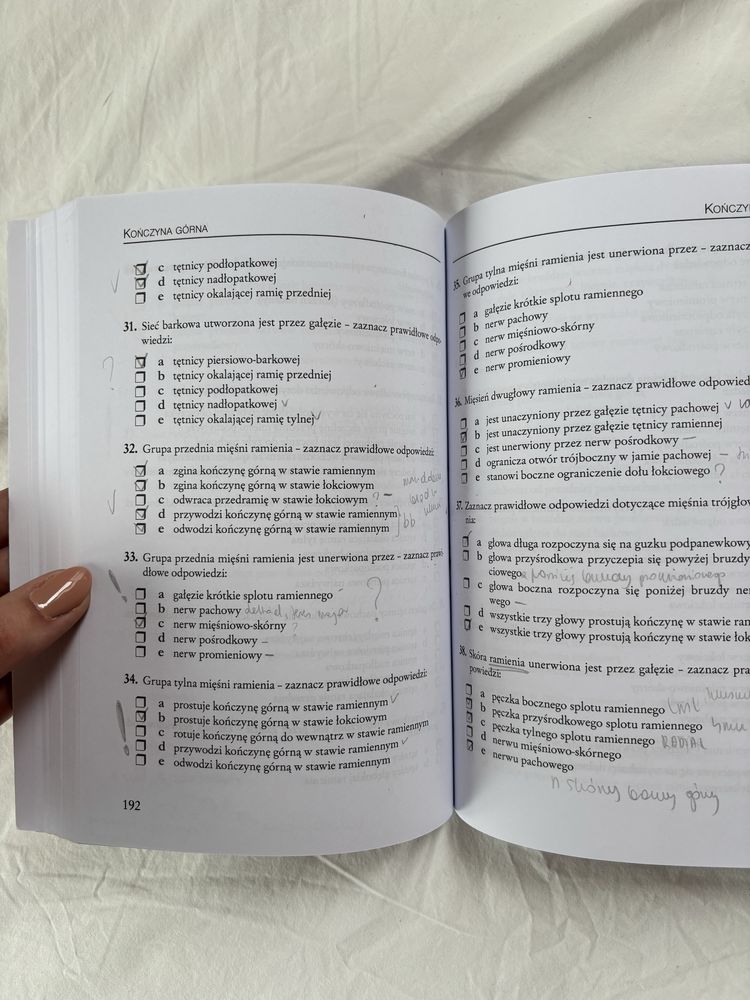 KOŃCZYNA GÓRNA
c tętnicy podłopatkowej
d tętnicy nadłopatkowej
e tętnicy okalającej ramię przedniej
31. Sieć barkowa utworzona jest przez gałęzie – zaznacz prawidłowe odpo-
wiedzi:
a tętnicy piersiowo-barkowej
b tętnicy okalającej ramię przedniej
c tętnicy podłopatkowej
d tętnicy nadłopatkowej
e tętnicy okalającej ramię tylnej
32. Grupa przednia mięśni ramienia – zaznacz prawidłowe odpowiedzi:
a zgina kończynę górną w stawie ramiennym
b zgina kończynę górną w stawie łokciowym
c odwraca przedramię w stawie łokciowym ? –
d przywodzi kończynę górną w stawie ramiennym
e odwodzi kończynę górną w stawie ramiennym
33. Grupa przednia mięśni ramienia jest unerwiona przez – zaznacz prawi-
dłowe odpowiedzi:
a gałęzie krótkie splotu ramiennego –
b nerw pachowy
c nerw mięśniowo-skórny ?
d nerw pośrodkowy –
e nerw promieniowy –
34. Grupa tylna mięśni ramienia – zaznacz prawidłowe odpowiedzi:
a prostuje kończynę górną w stawie ramiennym
b prostuje kończynę górną w stawie łokciowym
c rotuje kończynę górną do wewnątrz w stawie ramiennym
d przywodzi kończynę górną w stawie ramiennym
e odwodzi kończynę górną w stawie ramiennym
192
KOŃCZY
35. Grupa tylna mięśni ramienia jest unerwiona przez – zaznacz
we odpowiedzi:
a gałęzie krótkie splotu ramiennego
b nerw pachowy
c nerw mięśniowo-skórny
d nerw pośrodkowy
e nerw promieniowy
36. Mięsień dwugłowy ramienia – zaznacz prawidłowe odpowied
a jest unaczyniony przez gałęzie tętnicy pachowej
b jest unaczyniony przez gałęzie tętnicy ramiennej
c jest unerwiony przez nerw pośrodkowy –
d ogranicza otwór trójboczny w jamie pachowej –
e stanowi boczne ograniczenie dołu łokciowego ?
37. Zaznacz prawidłowe odpowiedzi dotyczące mięśnia trójgło
nia:
a głowa długa rozpoczyna się na guzku podpanewkowy
b głowa przyśrodkowa przyczepia się powyżej bruzdy
ciowego
c głowa boczna rozpoczyna się poniżej bruzdy ner
wego –
d wszystkie trzy głowy prostują kończynę w stawie ram
e wszystkie trzy głowy prostują kończynę w stawie łok
38. Skóra ramienia unerwiona jest przez gałęzie – zaznacz pra
powiedzi:
a pęczka bocznego splotu ramiennego
b pęczka przyśrodkowego splotu ramiennego
c pęczka tylnego splotu ramiennego RADIAL
d nerwu mięśniowo-skórnego
e nerwu pachowego